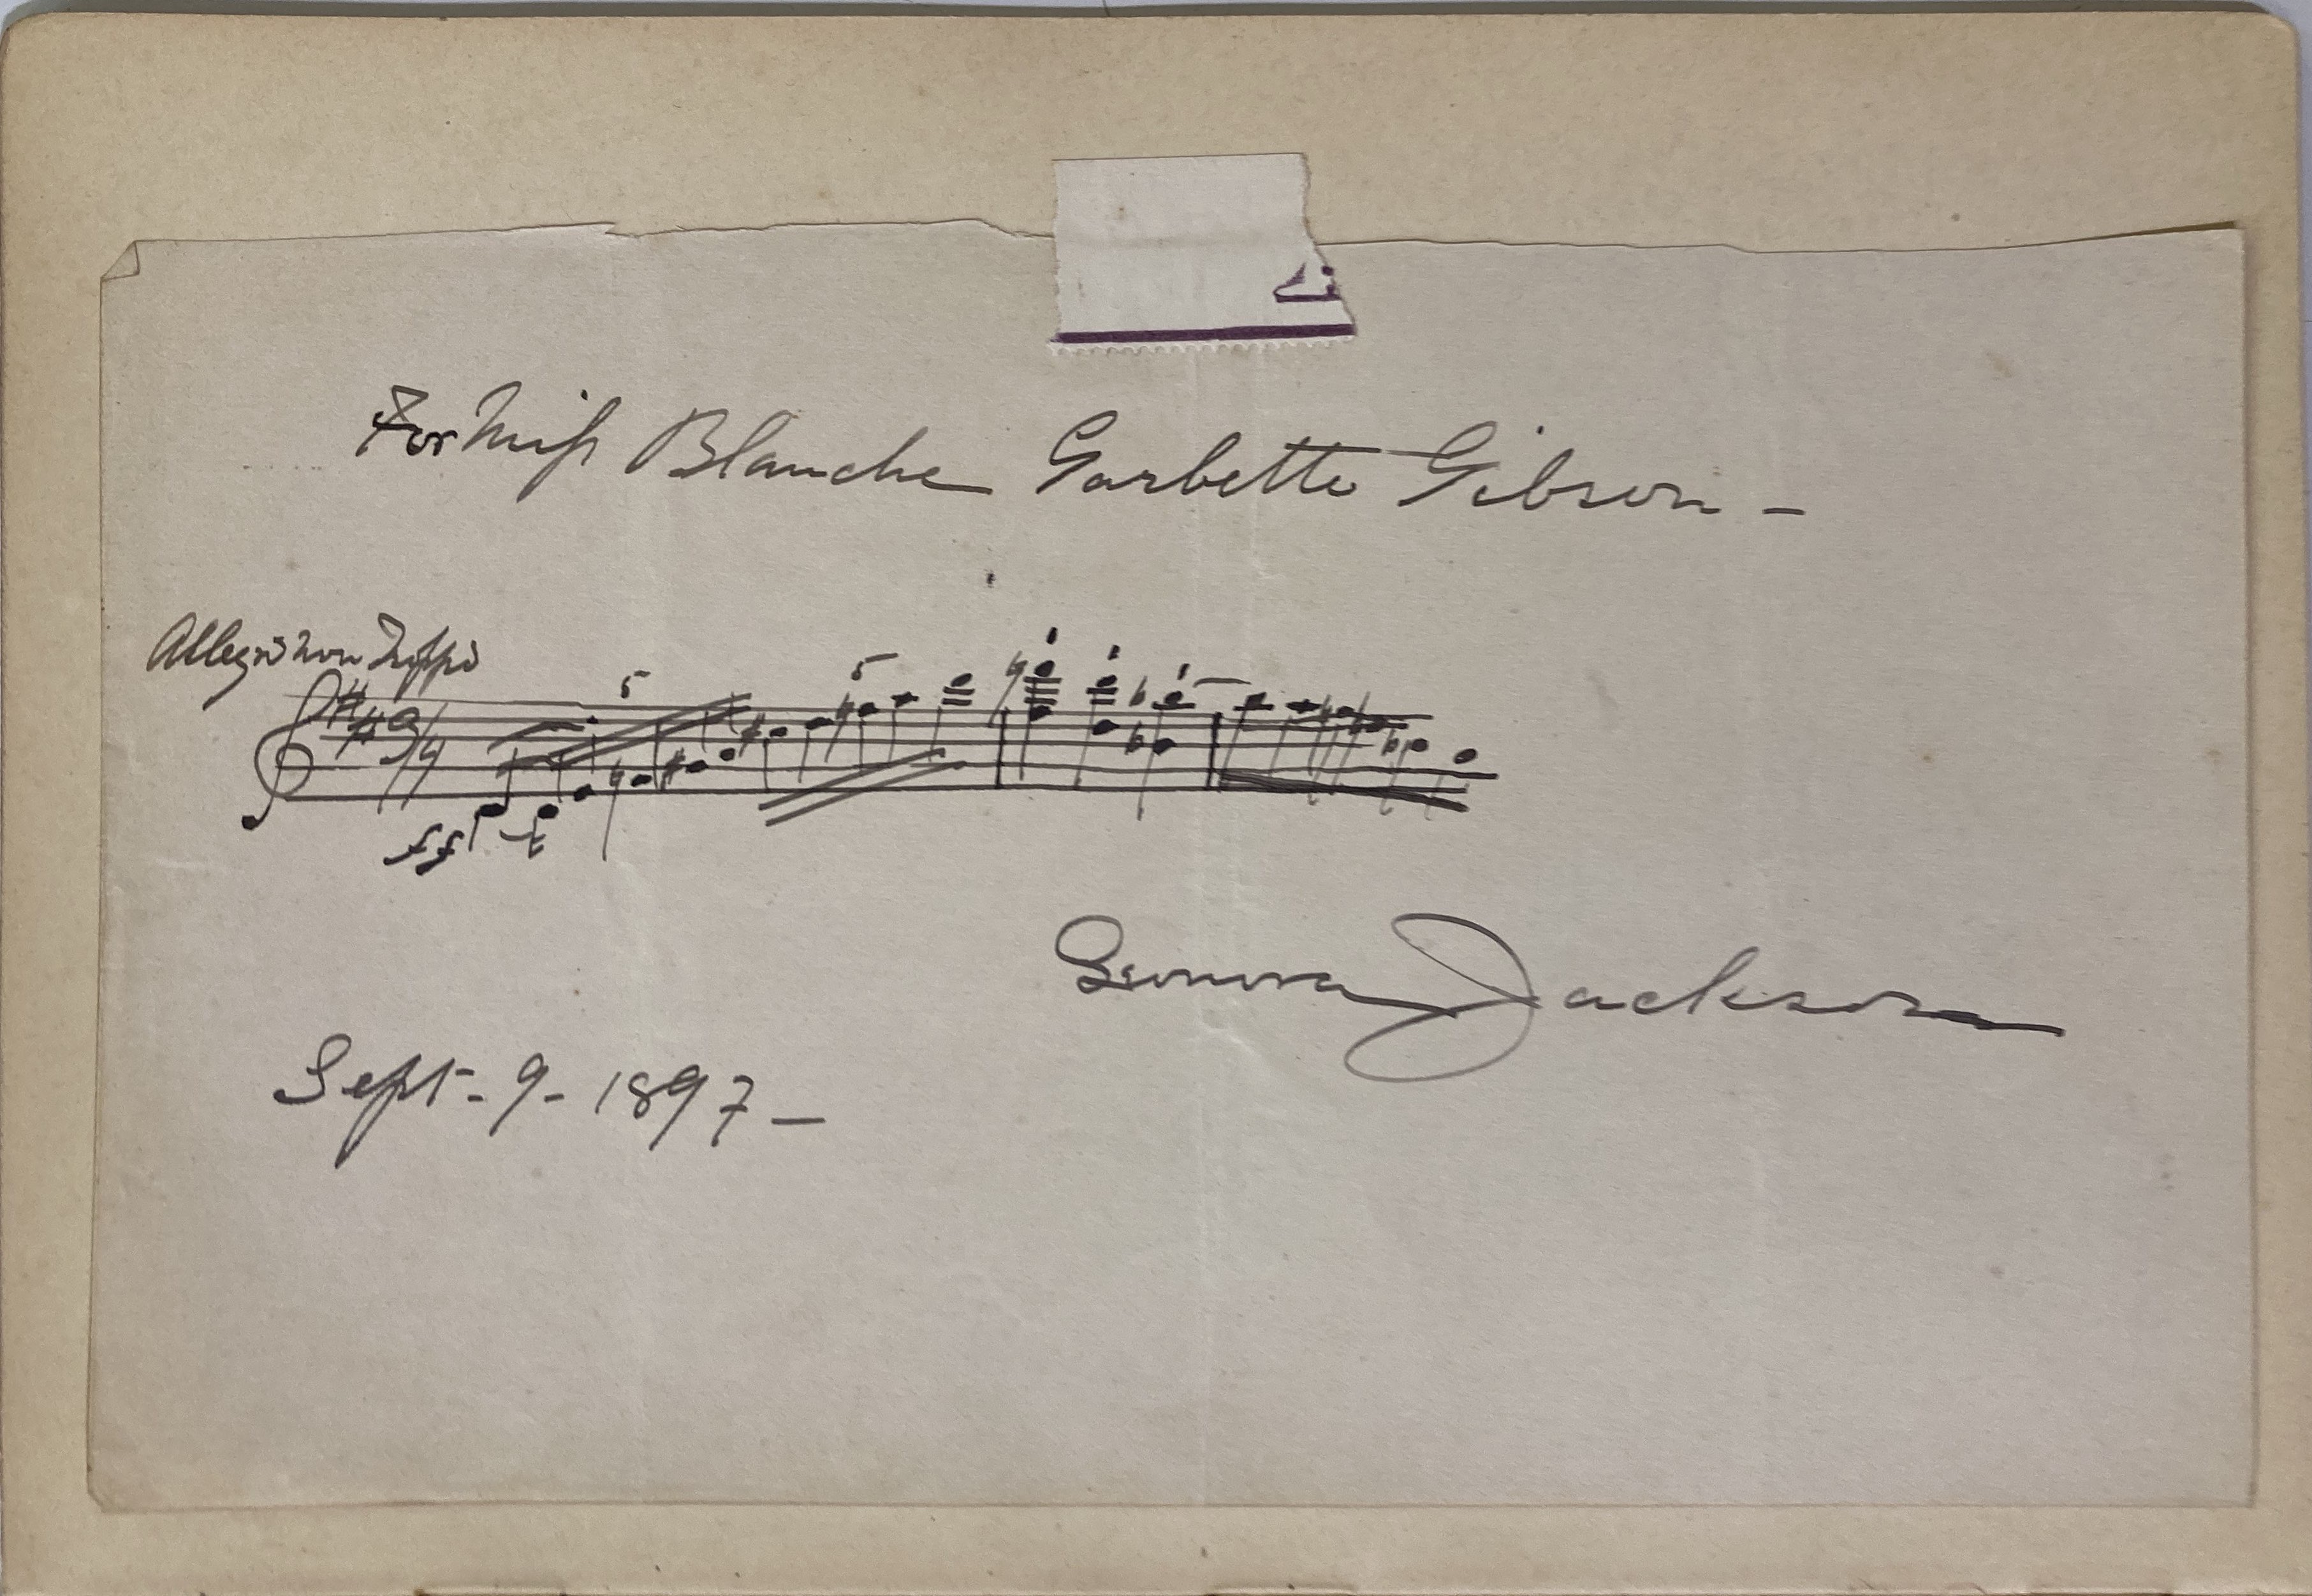 For Miss Blanche Garbette Gibson -
Allegro non
5 5
9/4
ff
Leonora Jackson
Sept - 9 - 1897 -